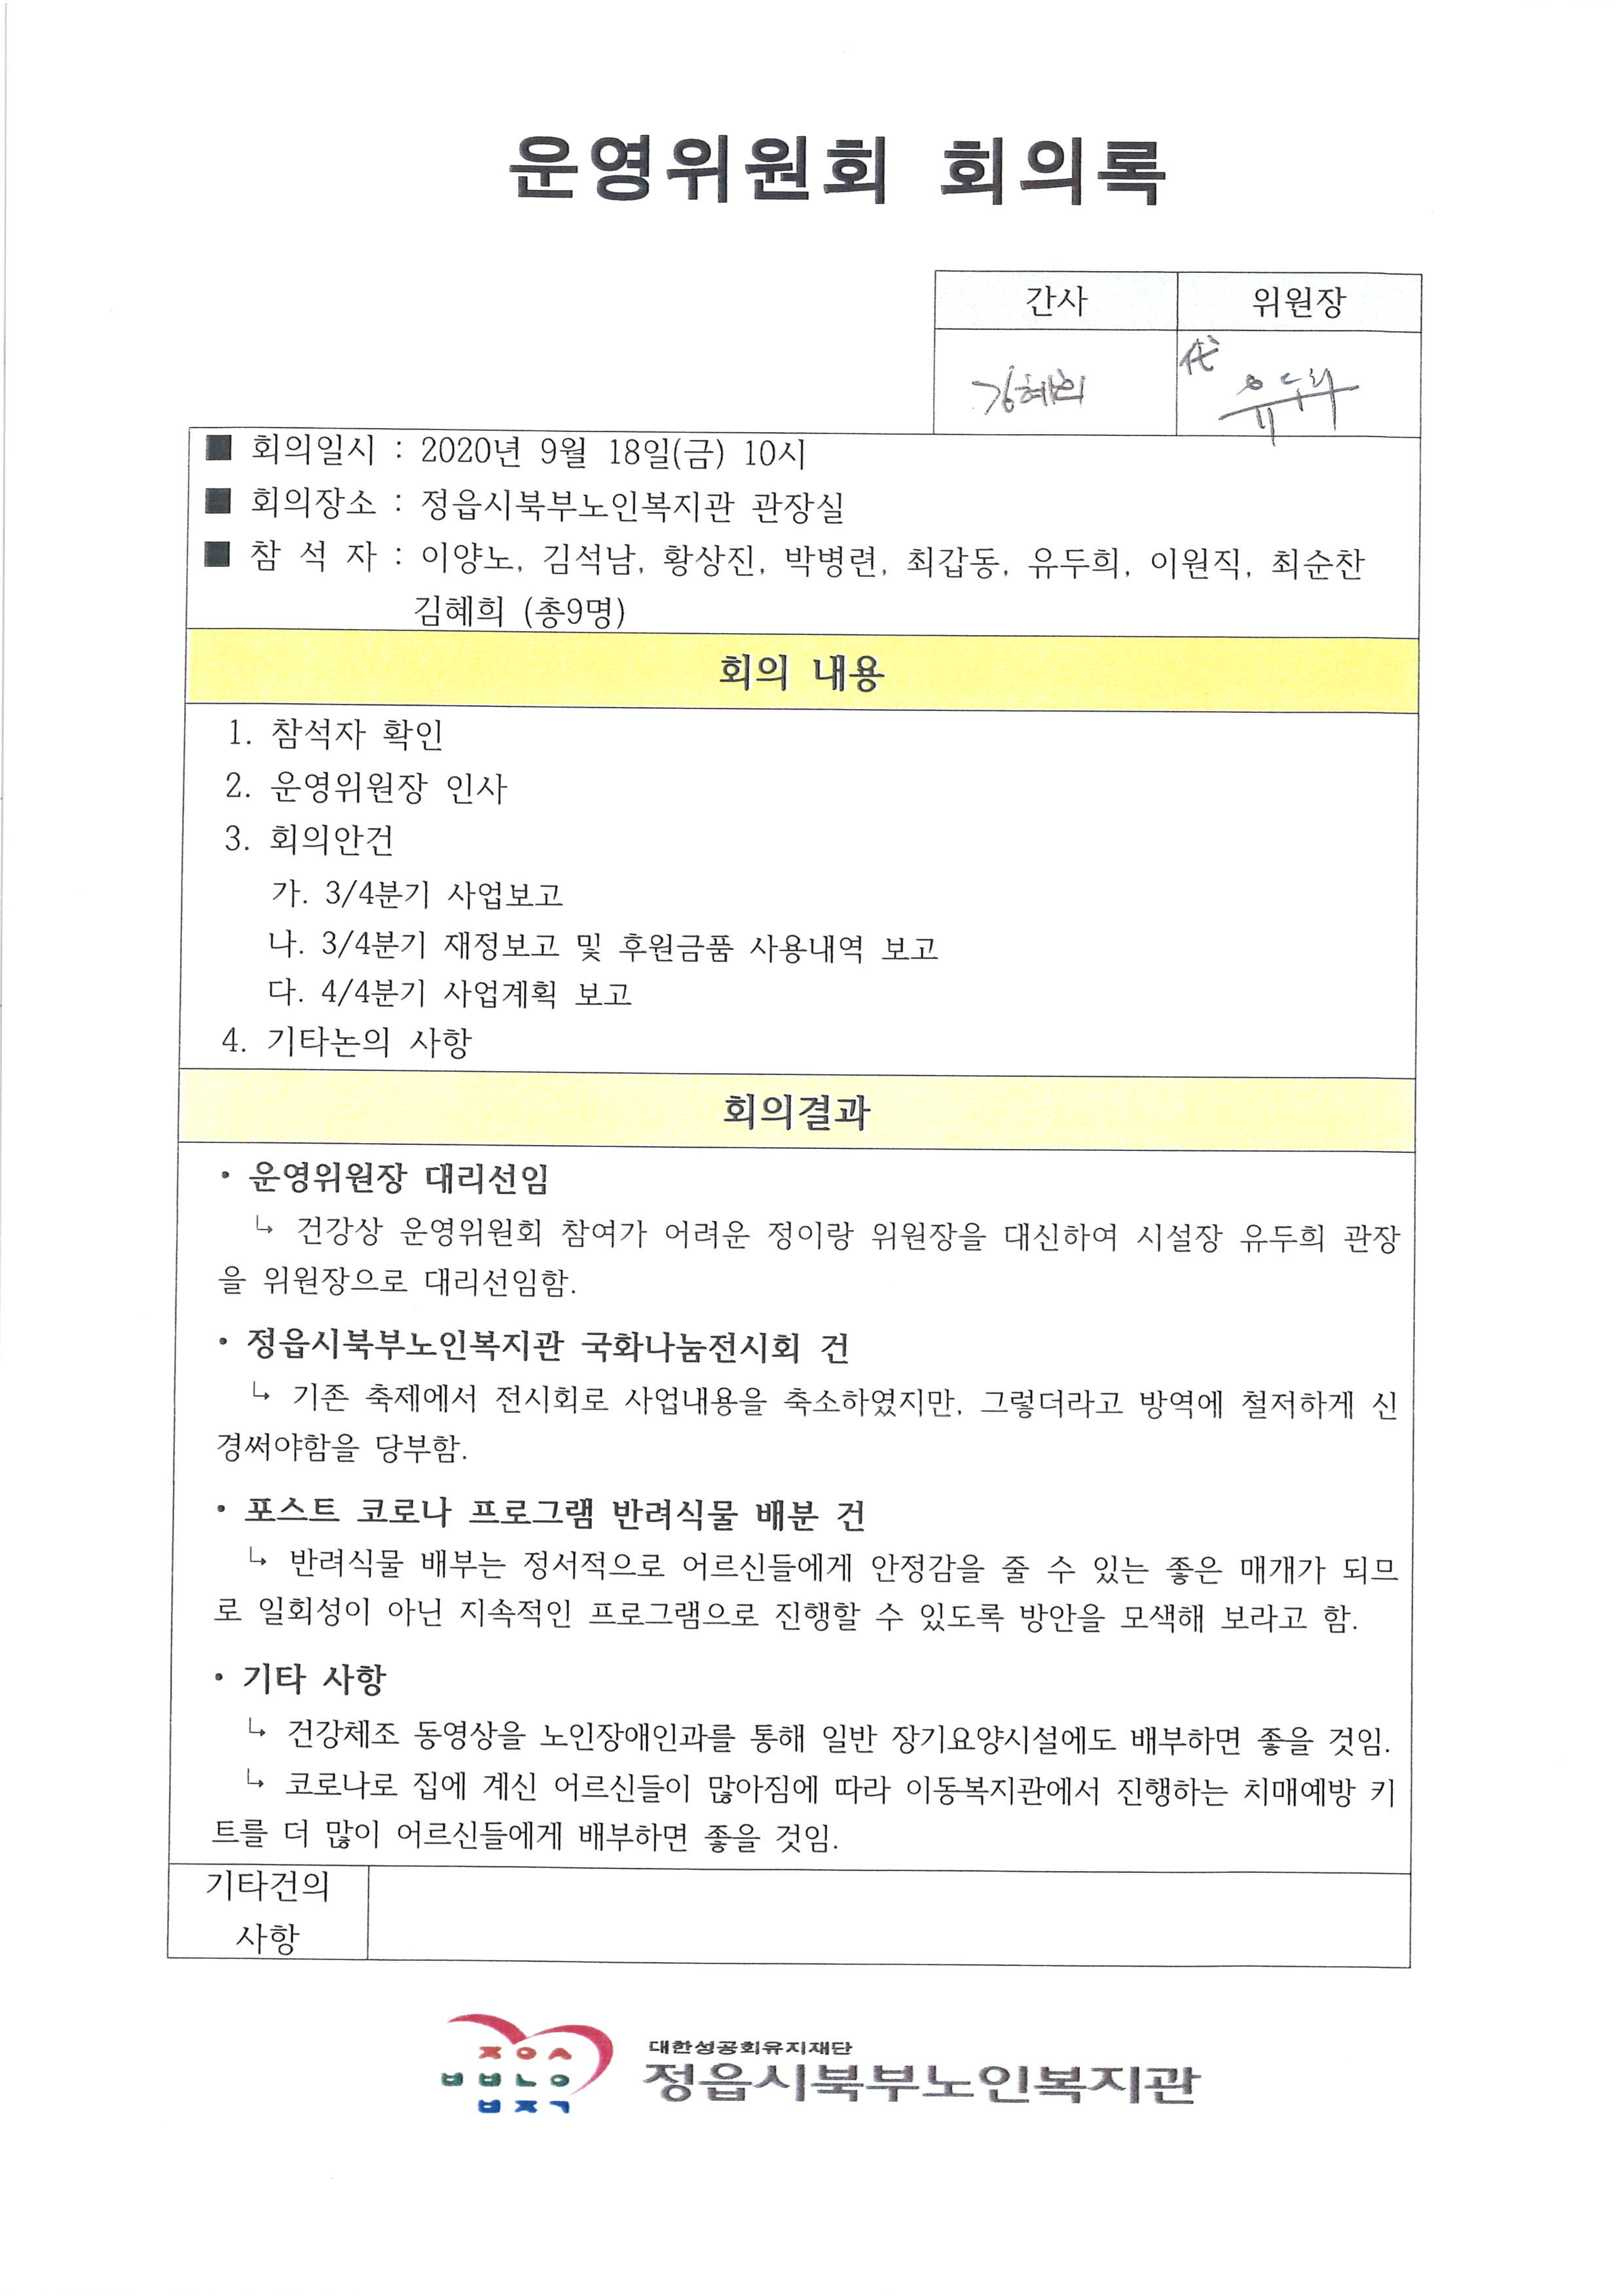 운영위원회 회의록
간사 위원장
김혜희 代 유두희
■ 회의일시 : 2020년 9월 18일(금) 10시
■ 회의장소 : 정읍시북부노인복지관 관장실
■ 참 석 자 : 이양노, 김석남, 황상진, 박병련, 최갑동, 유두희, 이원직, 최순찬
김혜희 (총9명)
회의 내용
1. 참석자 확인
2. 운영위원장 인사
3. 회의안건
가. 3/4분기 사업보고
나. 3/4분기 재정보고 및 후원금품 사용내역 보고
다. 4/4분기 사업계획 보고
4. 기타논의 사항
회의결과
• 운영위원장 대리선임
↳ 건강상 운영위원회 참여가 어려운 정이랑 위원장을 대신하여 시설장 유두희 관장
을 위원장으로 대리선임함.
• 정읍시북부노인복지관 국화나눔전시회 건
↳ 기존 축제에서 전시회로 사업내용을 축소하였지만, 그렇더라고 방역에 철저하게 신
경써야함을 당부함.
• 포스트 코로나 프로그램 반려식물 배분 건
↳ 반려식물 배부는 정서적으로 어르신들에게 안정감을 줄 수 있는 좋은 매개가 되므
로 일회성이 아닌 지속적인 프로그램으로 진행할 수 있도록 방안을 모색해 보라고 함.
• 기타 사항
↳ 건강체조 동영상을 노인장애인과를 통해 일반 장기요양시설에도 배부하면 좋을 것임.
↳ 코로나로 집에 계신 어르신들이 많아짐에 따라 이동복지관에서 진행하는 치매예방 키
트를 더 많이 어르신들에게 배부하면 좋을 것임.
기타건의
사항
ㅈㅇㅅ
ㅂㅂㄴㅇ
ㅂㅈㄱ
대한성공회유지재단
정읍시북부노인복지관